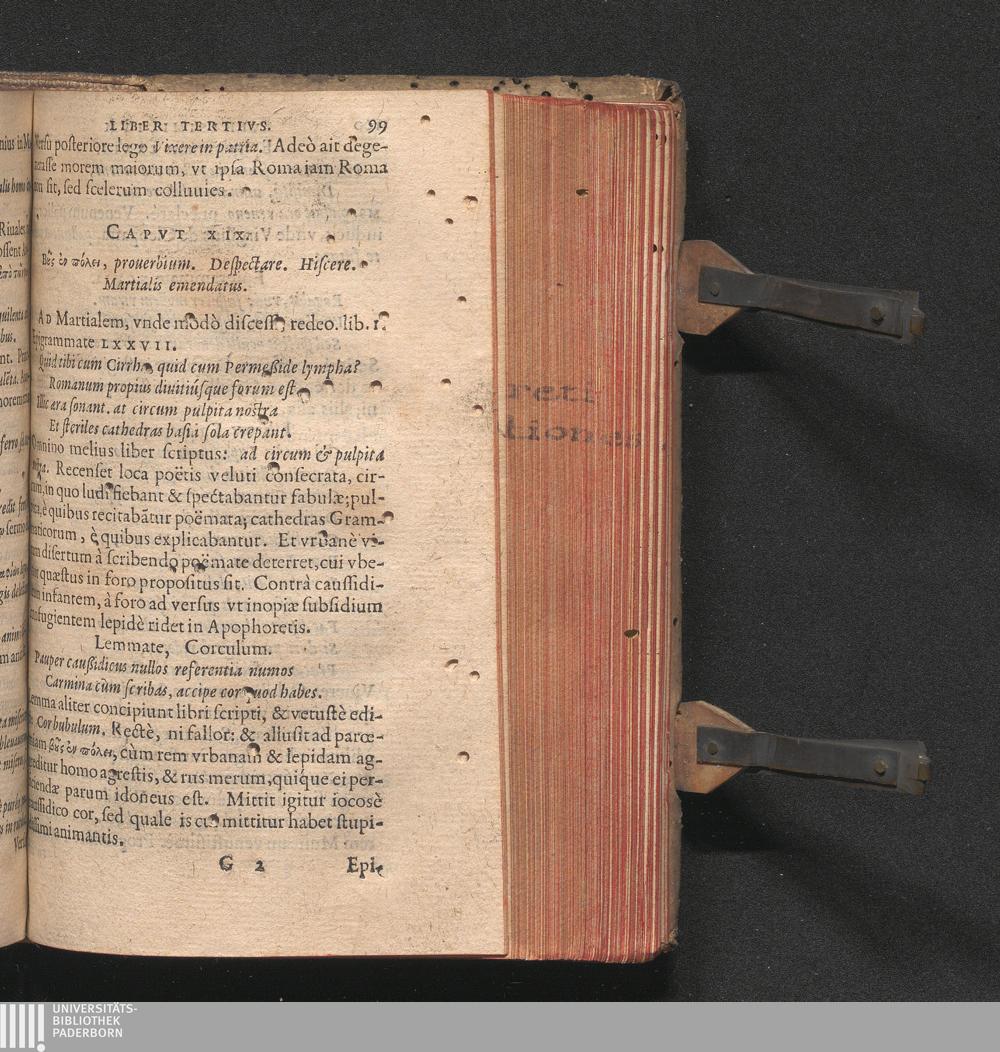 LIBER TERTIVS. 99
Versu posteriore lego Vixere in patria. Adeò ait dege-
nerasse morem maiorum, vt ipsa Roma iam Roma
non sit, sed scelerum colluuies.
CAPVT XIX.
Βῦς ἐν πόλει, prouerbium. Despectare. Hiscere.
Martialis emendatus.
AD Martialem, vnde modò discessi, redeo. lib. I.
Epigrammate LXXVII.
Quid tibi cum Cirrha, quid cum Permesside lympha?
Romanum propius diuitiúsque forum est,
Illic æra sonant. at circum pulpita nostra
Et steriles cathedras basia sola crepant.
Omnino melius liber scriptus: ad circum & pulpita
nostra. Recenset loca poëtis veluti consecrata, cir-
cum, in quo ludi fiebant & spectabantur fabulæ; pul-
pita, è quibus recitabātur poëmata; cathedras Gram-
maticorum, è quibus explicabantur. Et vrbanè vi-
rum disertum à scribendo poëmate deterret, cui vbe-
rior quæstus in foro propositus sit. Contrà caussidi-
cum infantem, à foro ad versus vt inopiæ subsidium
confugientem lepidè ridet in Apophoretis.
Lemmate, Corculum.
Pauper caussidicus nullos referentia numos
Carmina cùm scribas, accipe cor quod habes.
Lemma aliter concipiunt libri scripti, & vetustè edi-
ti Cor bubulum. Rectè, ni fallor: & allusit ad parœ-
miam βῦς ἐν πόλει, cùm rem vrbanam & lepidam ag-
greditur homo agrestis, & rus merum, quíque ei per-
ficiendæ parum idoneus est. Mittit igitur iocosè
caussidico cor, sed quale is cui mittitur habet stupi-
dissimi animantis.
G 2 Epi-
UNIVERSITÄTS-
BIBLIOTHEK
PADERBORN